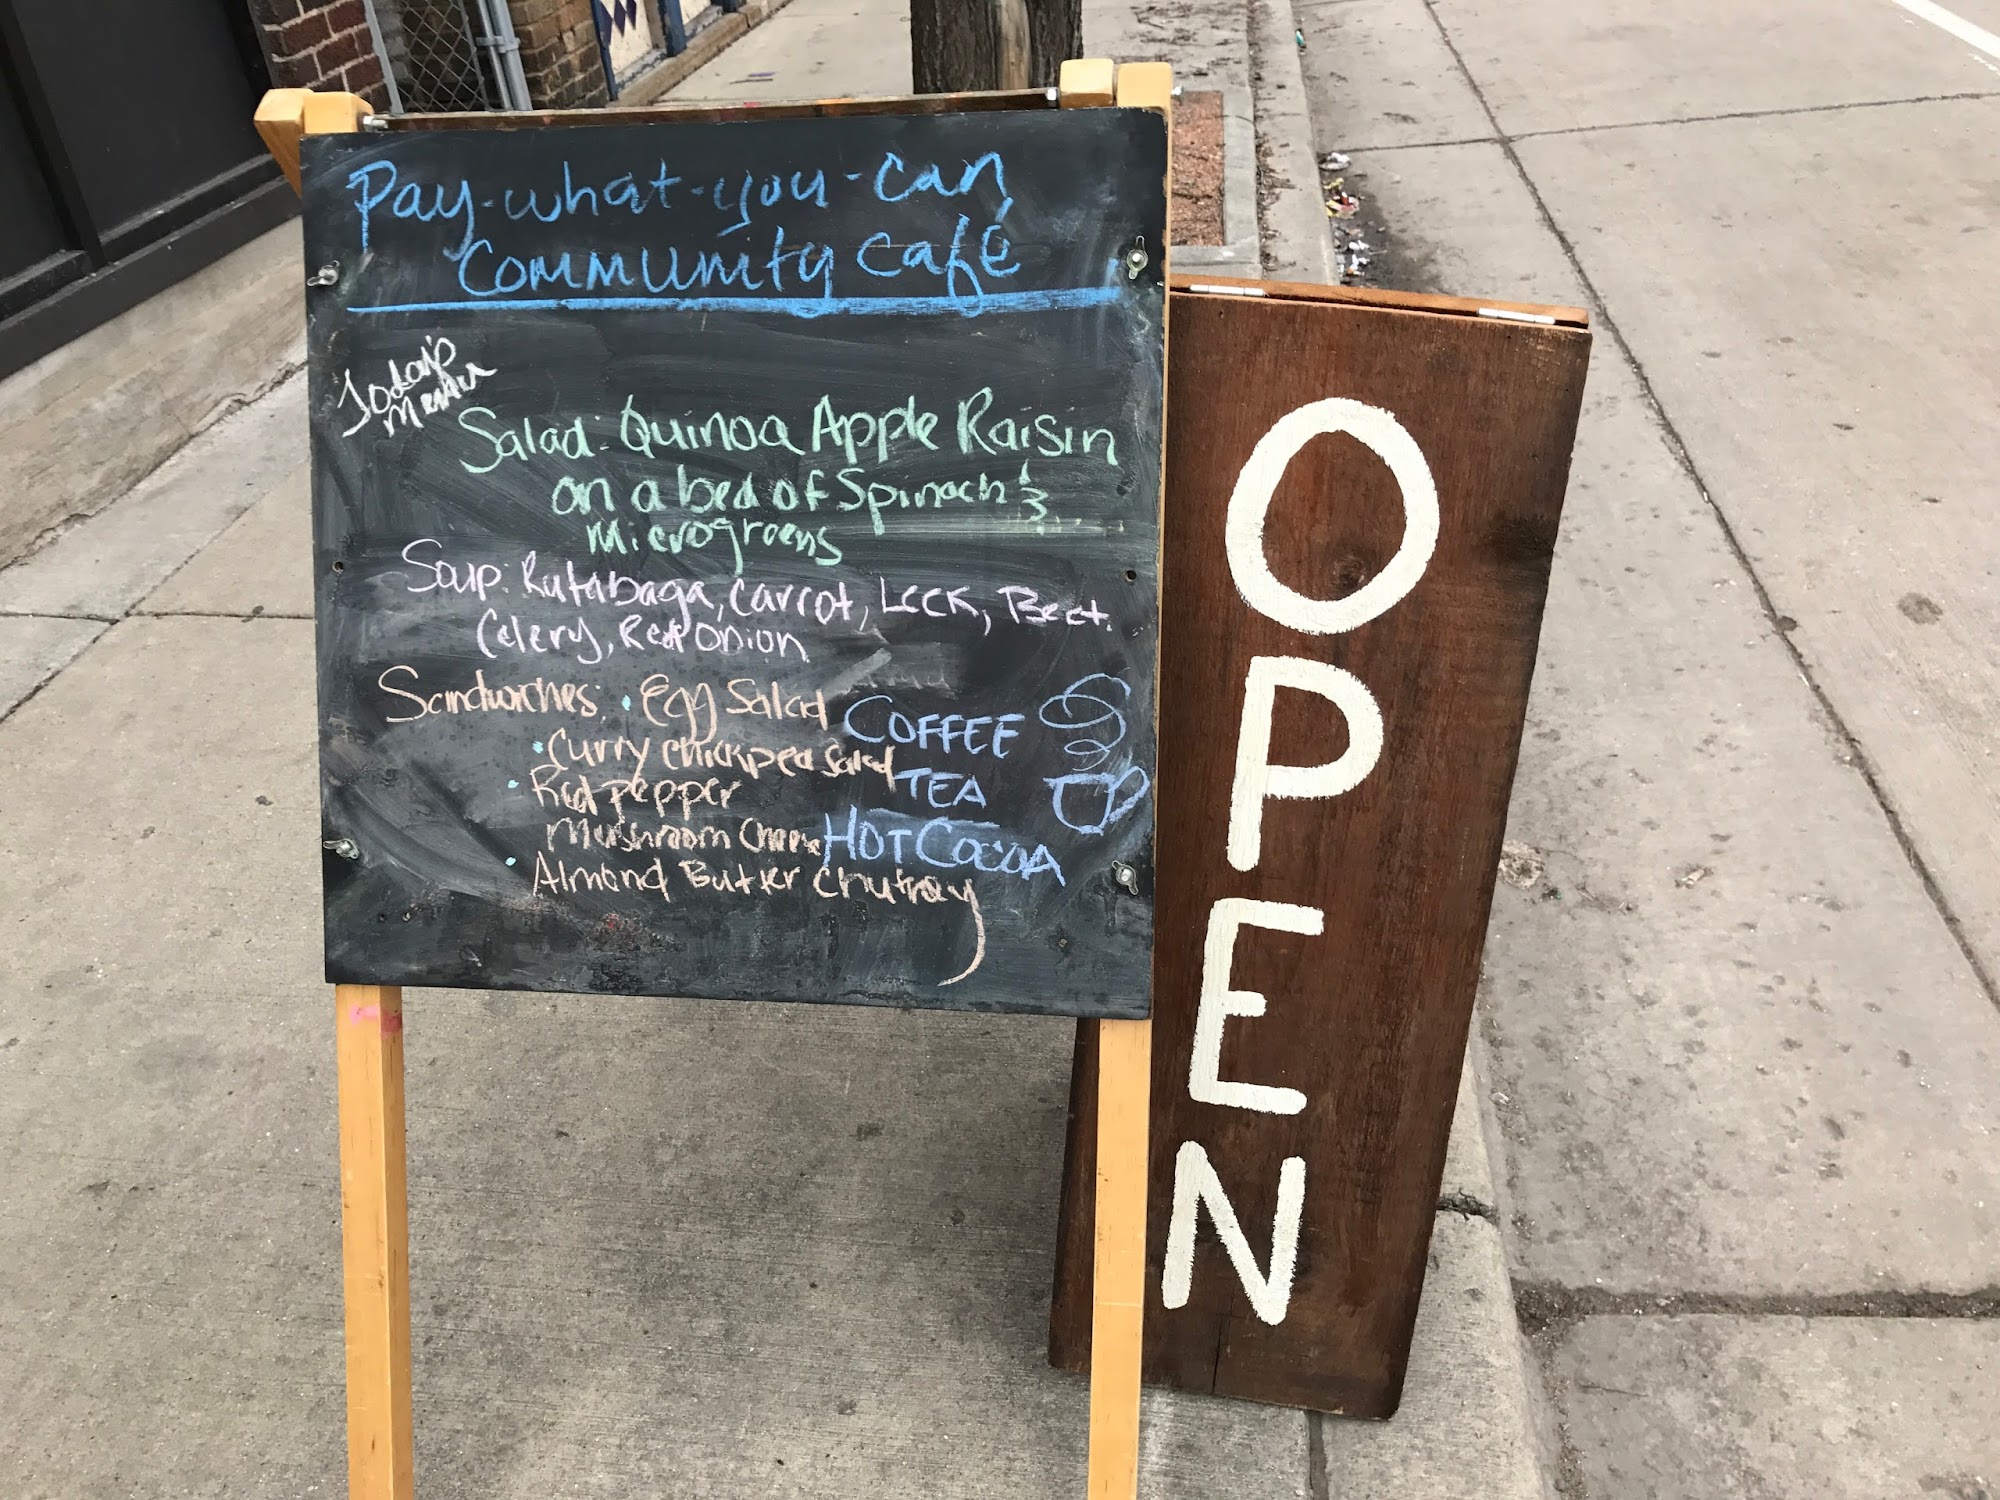 Pay-what-you-can
Community Café
Today's
Menu
Salad: Quinoa Apple Raisin
on a bed of Spinach &
Microgreens
Soup: Rutabaga, Carrot, Leek, Beet.
Celery, Red Onion
Sandwiches: • Egg Salad
• Curry chickpea salad
• Red pepper
Mushroom
• Almond Butter chutney
COFFEE
TEA
HOT COCOA
OPEN